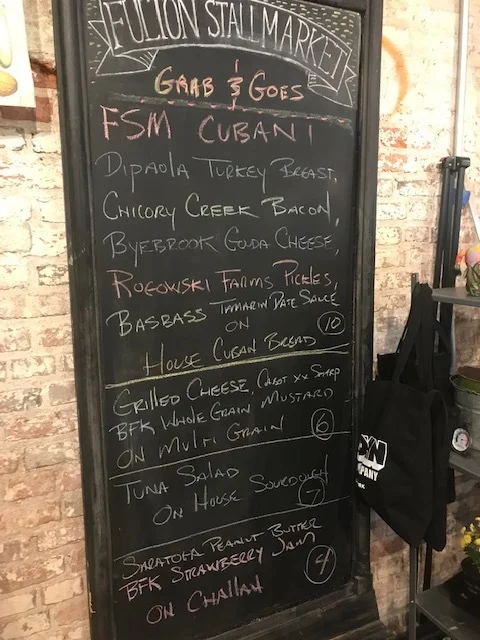 FULTON STALL MARKET
GRAB & GOES
FSM CUBAN!
DIPAOLA TURKEY BREAST,
CHICORY CREEK BACON,
BYEBROOK GOUDA CHEESE,
ROGOWSKI FARMS PICKLES,
BASBASS TAMARIN' DATE SAUCE
ON
HOUSE CUBAN BREAD 10
GRILLED CHEESE, CABOT XX SHARP
BFK WHOLE GRAIN MUSTARD
ON MULTI GRAIN 6
TUNA SALAD
ON HOUSE SOURDOUGH 7
SARATOGA PEANUT BUTTER
BFK STRAWBERRY JAM 4
ON CHALLAH
MPANY